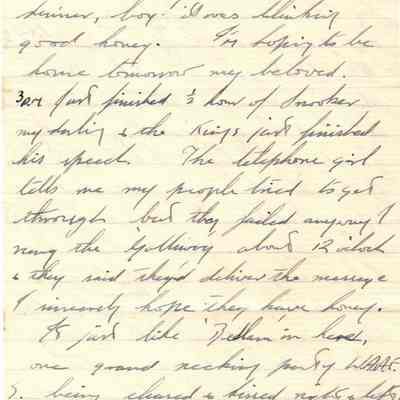 dinner, boy! it was blinking
good honey. I'm hoping to be
home tomorrow my beloved.
Just finished ½ hour of snooker
my darling & the King's just finished
his speech. The telephone girl
tells me my people tried to get
through but they failed anyway I
rang the about 12 oclock
& they said they'd deliver the message
I sincerely hope they have honey.
It's just like in here,
one grand necking party WAAF.
being chased & kissed right & left